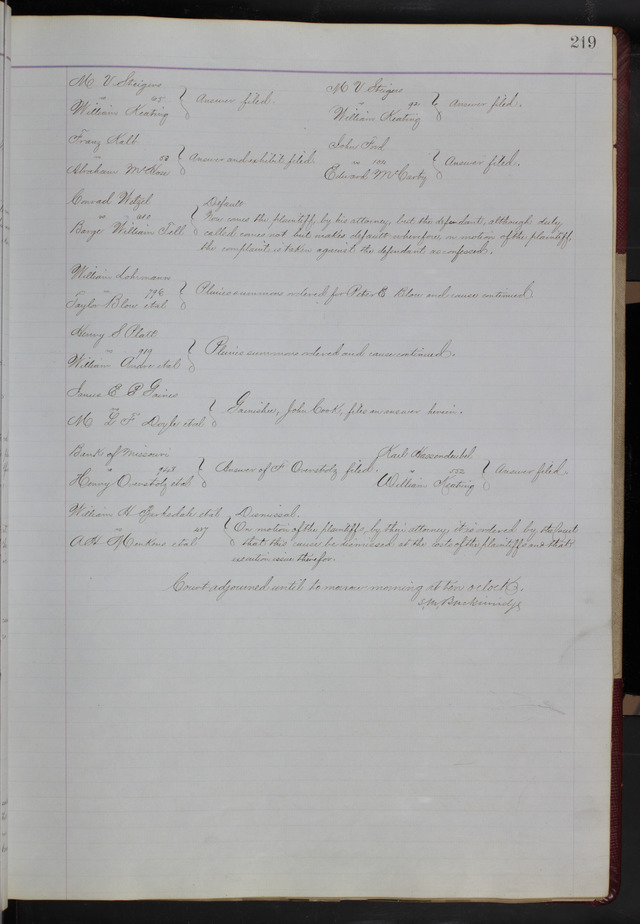 219
M V Steigers
vs 95 } Answer filed.
William Keating
M V Steigers
vs 92 } Answer filed.
William Keating
Franz Kalb
vs 53 } Answer and exhibit filed.
Abraham McKee
John Ford
vs 102 } Answer filed.
Edward McCarty
Conrad Wetzel
vs 210
Barge William Tell
Default
Now comes the plaintiff, by his attorney, but the defendant, although duly
called comes not but makes default wherefore, on motion of the plaintiff
the complaint is taken against the defendant as confessed.
William Lohrmann
vs 796 } Pluries summons ordered for Peter E Blow and cause continued
Taylor Blow et al
Henry S Platt
vs 919 } Pluries summons ordered and cause continued.
William et al
James E P Gaines
vs } Garnishee, John Cook, files an answer herein.
M L F Doyle et al
Bank of Missouri
vs } Answer of F Overstolz filed.
Henry Overstolz et al
Karl Hassendeubel
vs 552 } Answer filed
William Keating
William H Barksdale et al
vs 237
A H Menkens et al
Dismissal.
On motion of the plaintiffs, by their attorney, it is ordered by the Court
that this cause be dismissed at the costs of the plaintiffs and that
execution issue therefor.
Court adjourned until to morrow morning at ten oclock.
S. M. Breckinridge